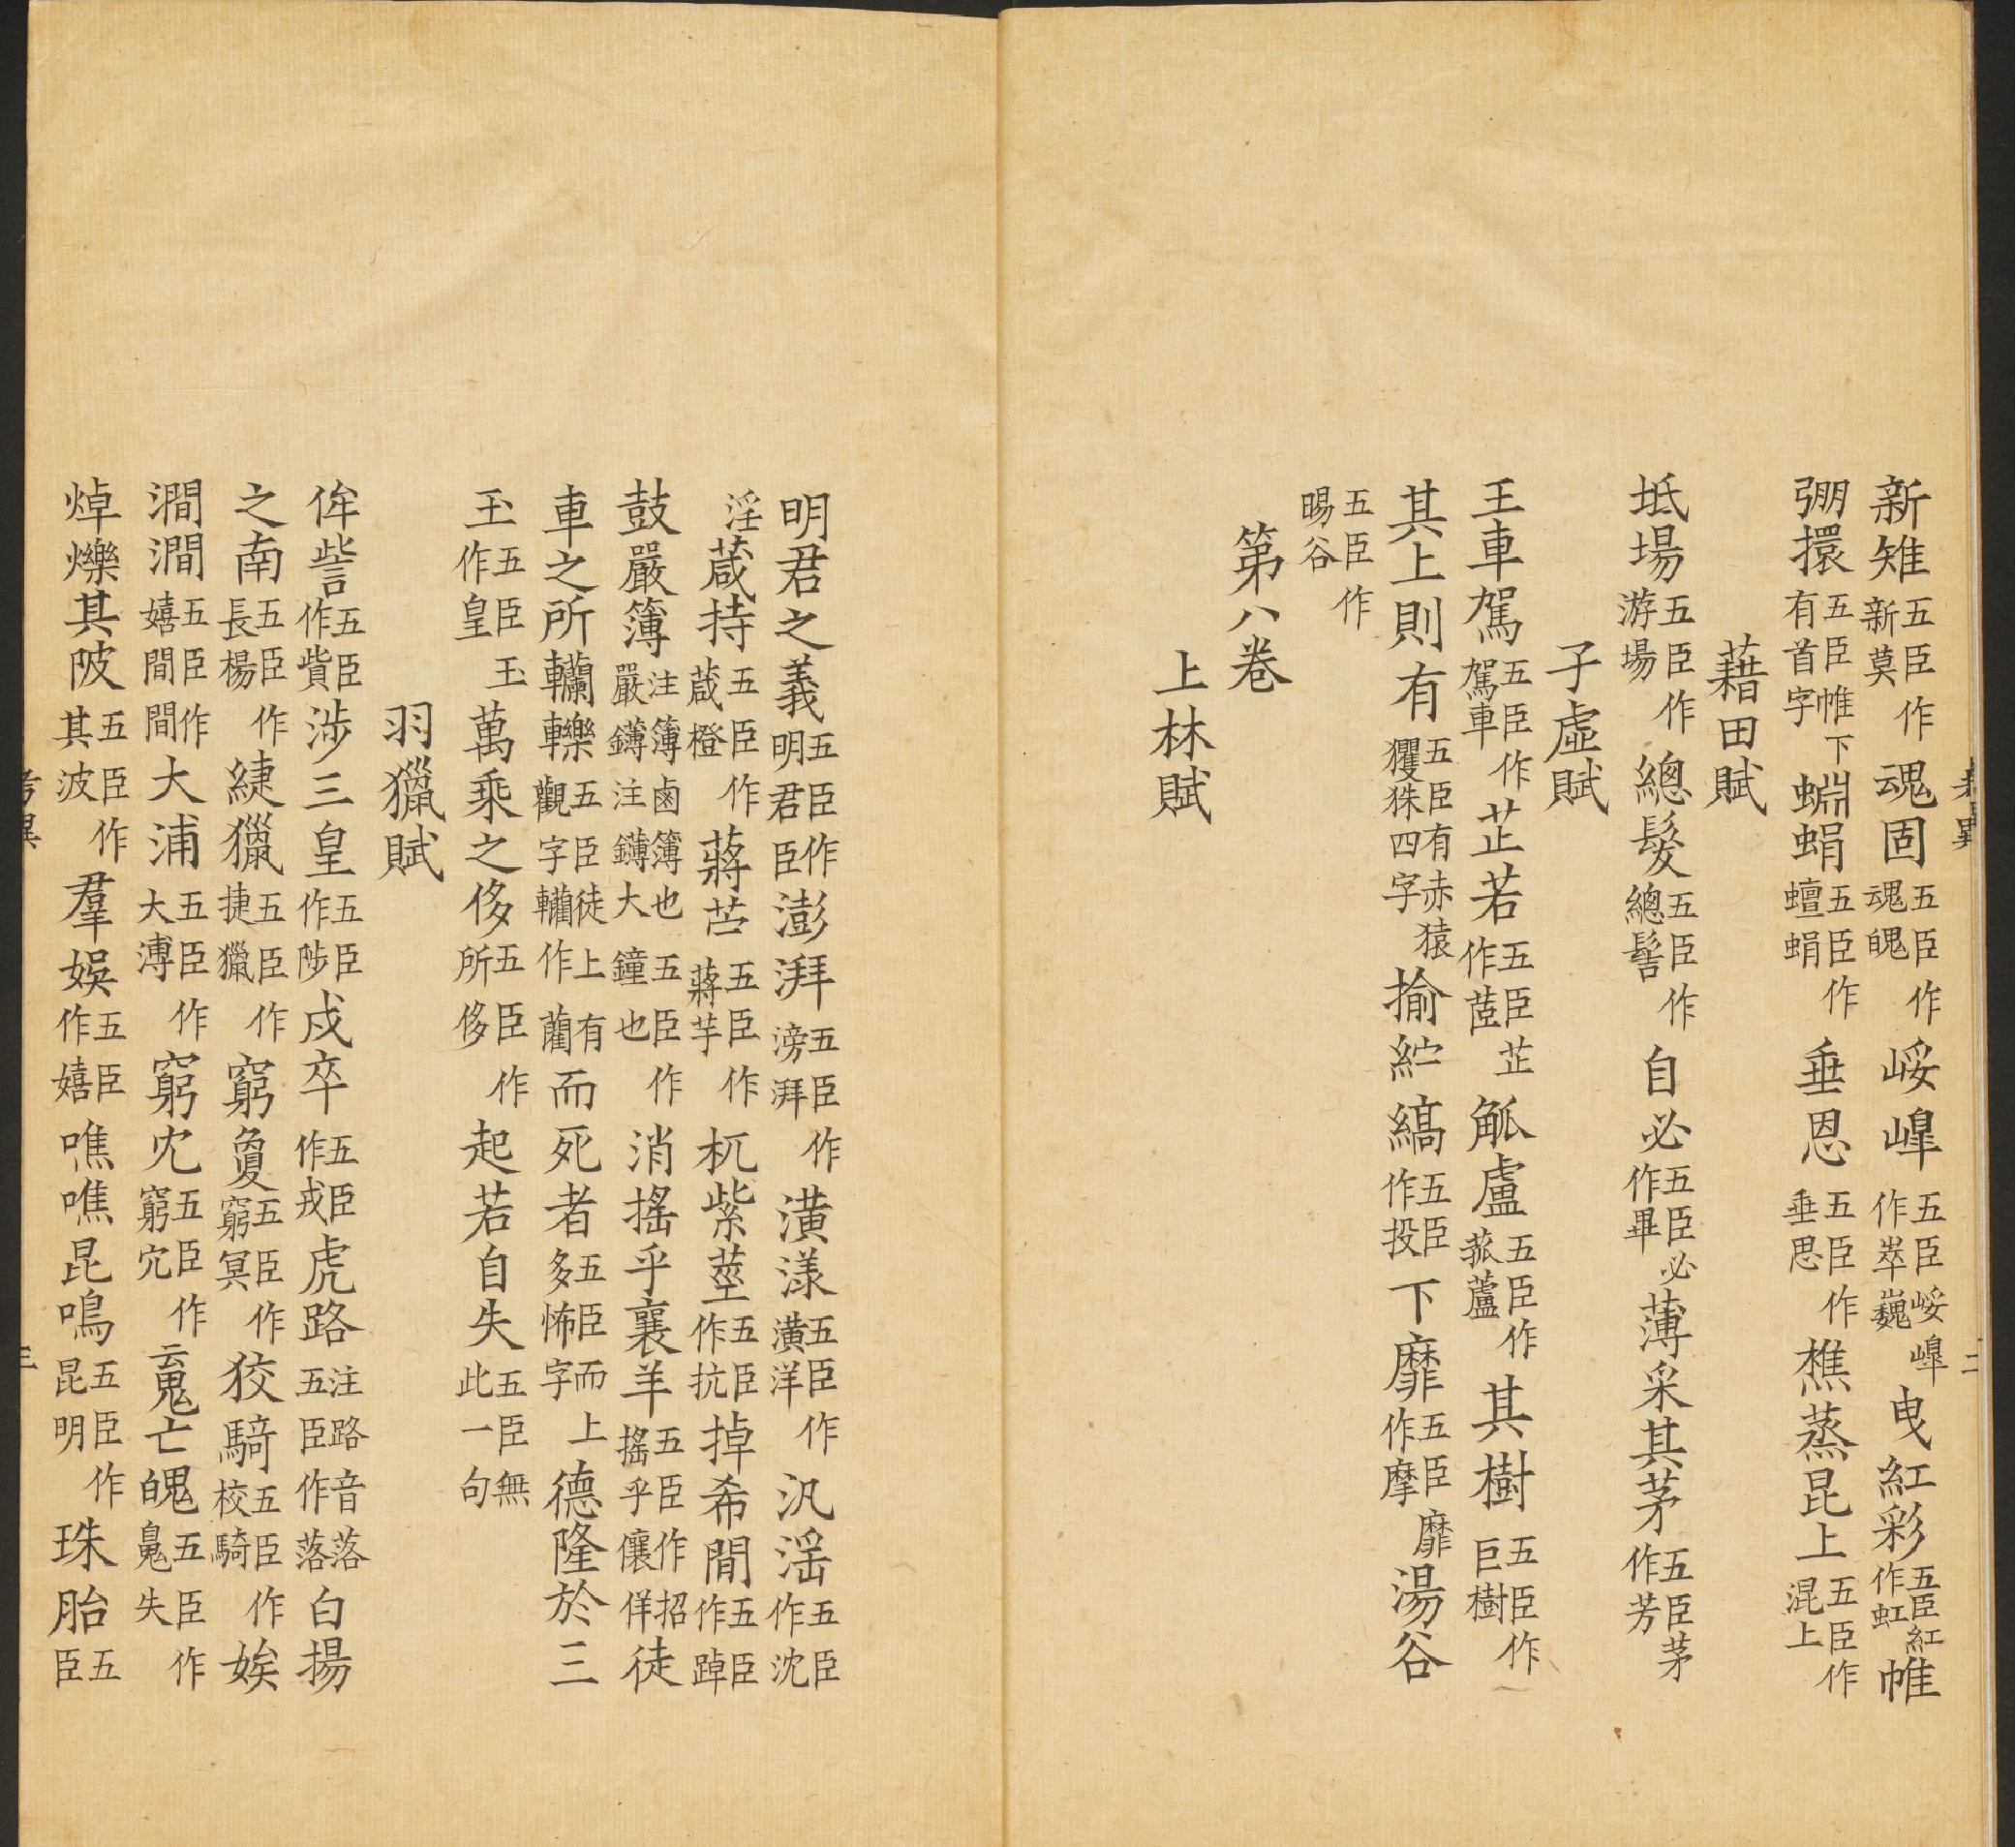 新雉五臣作新莫魂固五臣作魂魄㟎㠑五臣㟎㠑作崒巍曳紅彩五臣紅作虹帷
弸擐五臣帷下有首字蜵蜎五臣作蟺蜎垂恩五臣作垂思樵蒸昆上五臣作混上
藉田賦
坻場五臣作游場總髮五臣作總髻自必五臣必作畢薄采其茅五臣茅作芳
子虛賦
王車駕五臣作駕車芷若五臣芷作茝觚盧五臣作菰蘆其樹五臣作巨樹
其上則有五臣有赤猿玃猱四字揄紵縞五臣作投下靡五臣靡作摩湯谷
五臣作暘谷
第八卷
上林賦
明君之義五臣作明君臣澎湃五臣作滂湃潢漾五臣作潢洋汎淫五臣作沈
淫葴持五臣作葴橙蔣芑五臣作蔣芋杌紫莖五臣作抗掉希間五臣作踔
鼓嚴簿注簿鹵簿也嚴鑮注鑮大鐘也五臣作消搖乎襄羊五臣作招搖乎儴佯徒
車之所轥轢五臣徒上有觀字轥作藺而死者五臣而上多怖字德隆於三
玉五臣玉作皇萬乘之侈五臣作所侈起若自失五臣無此一句
羽獵賦
侔訾五臣作貲涉三皇五臣作陟戍卒五臣作戎虎路注路音落五臣作落白揚
之南五臣作長楊緁獵五臣作捷獵窮敻五臣作窮冥狡騎五臣作校騎娭
澗澗五臣作嬉間間大浦五臣作大溥窮冘五臣作窮穴䰟亡魄五臣作䰟失
焯爍其陂五臣作其波羣娛五臣作嬉噍噍昆鳴五臣作昆明珠胎五臣